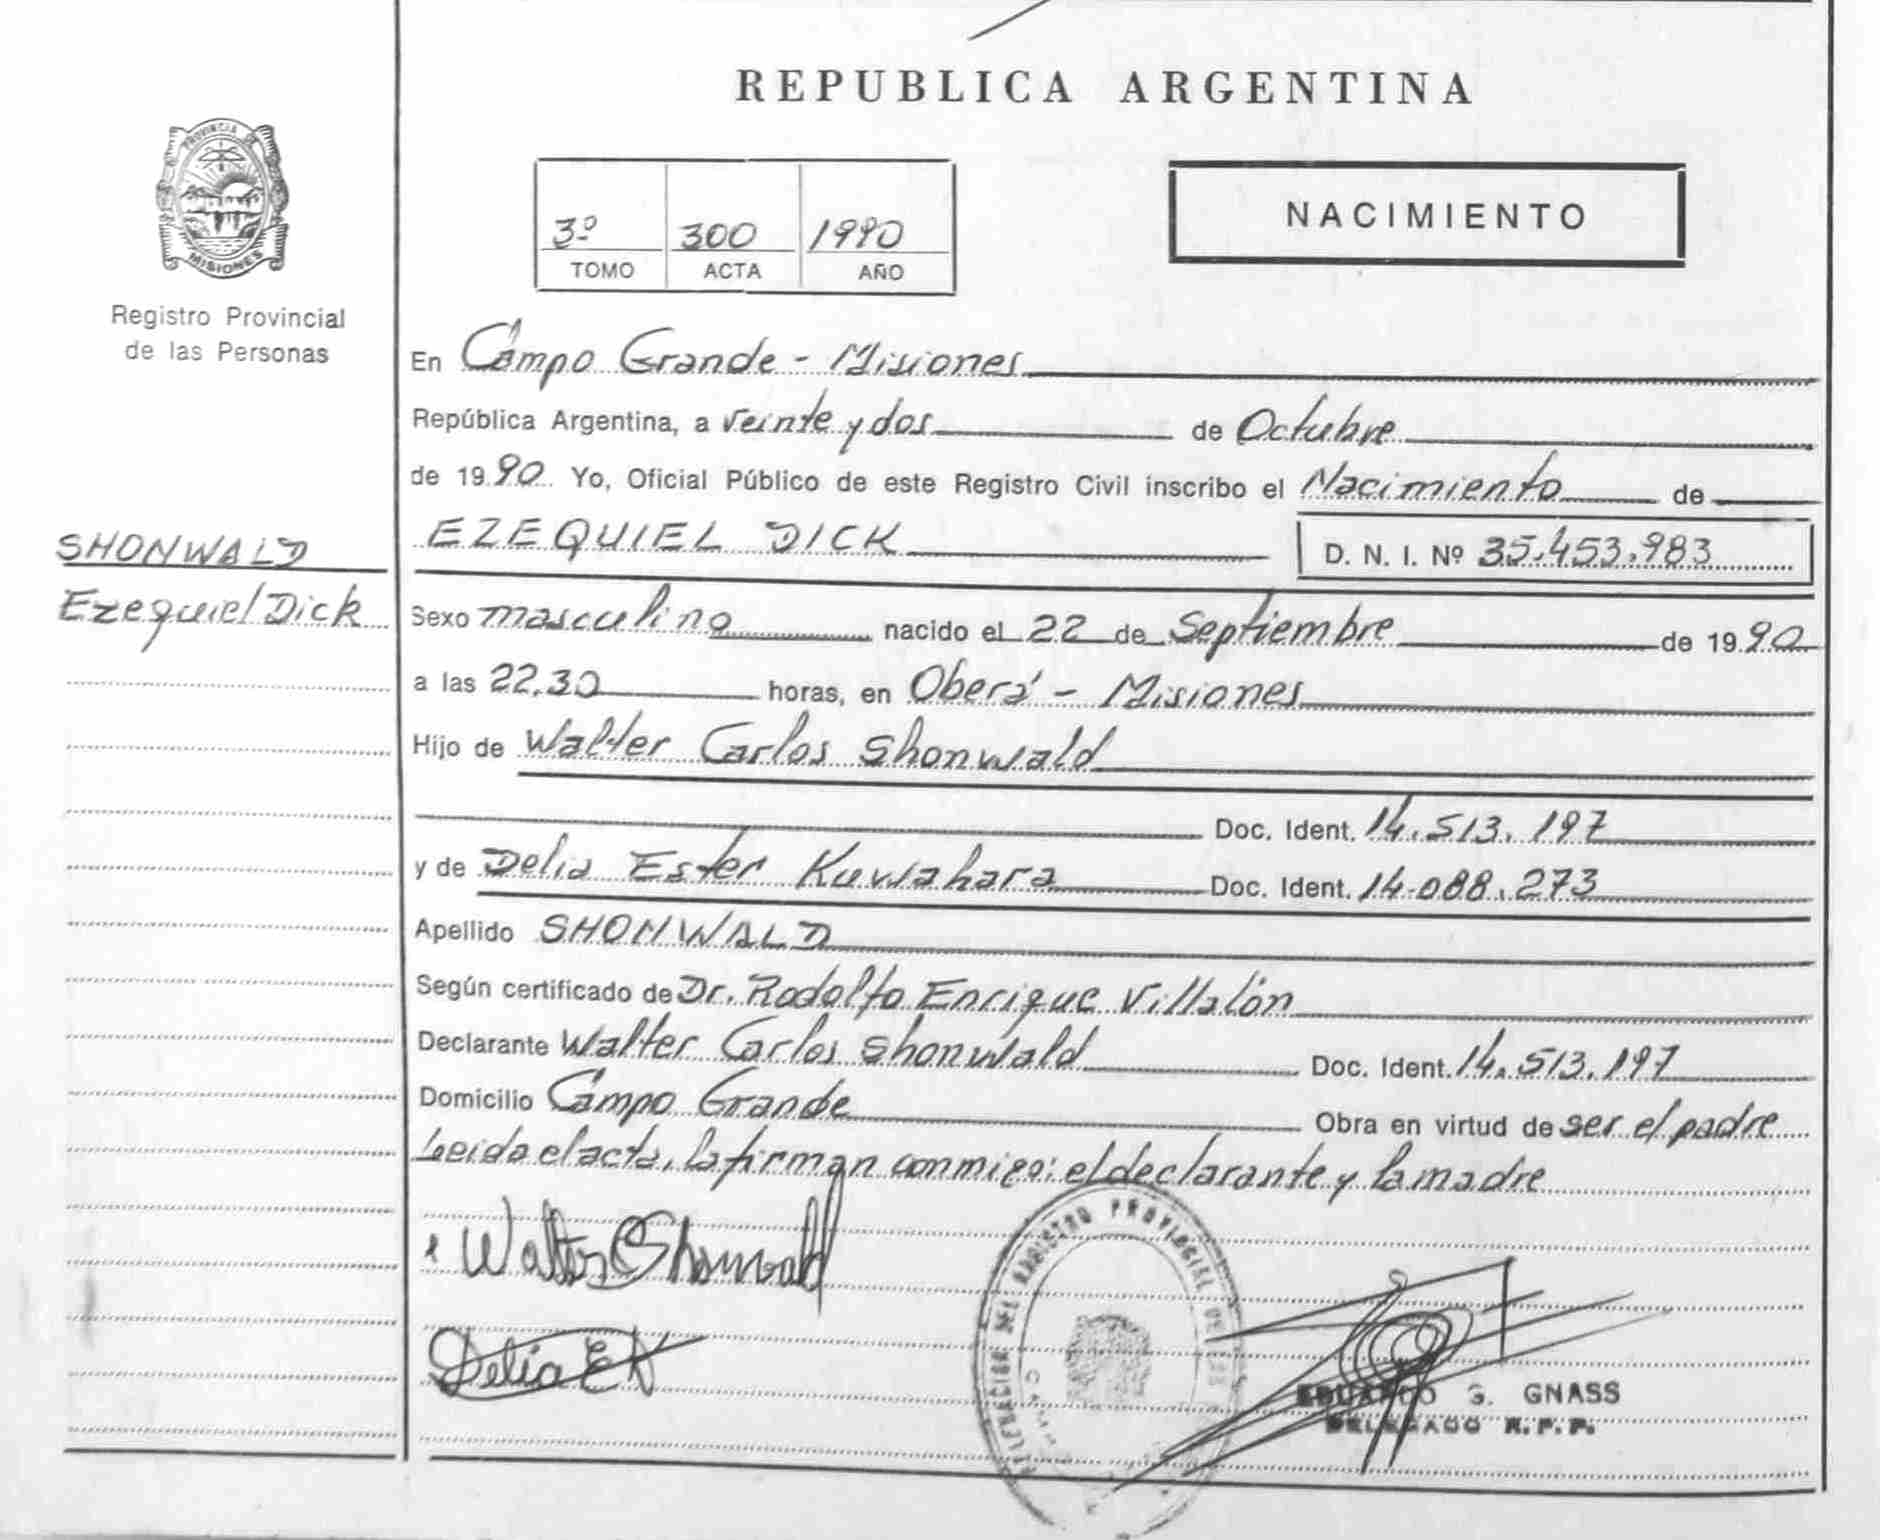 REPUBLICA ARGENTINA
PROVINCIA DE
MISIONES
Registro Provincial
de las Personas
3º 300 1990
TOMO ACTA AÑO
NACIMIENTO
En Campo Grande - Misiones
República Argentina, a veinte y dos de Octubre
de 1990 Yo, Oficial Público de este Registro Civil inscribo el Nacimiento de
SHONWALD
Ezequiel Dick
EZEQUIEL DICK D. N. I. Nº 35.453.983
Sexo masculino nacido el 22 de Septiembre de 1990
a las 22.30 horas, en Oberá - Misiones
Hijo de Walter Carlos Shonwald
Doc. Ident. 14.513.197
y de Delia Ester Kuwahara Doc. Ident. 14.088.273
Apellido SHONWALD
Según certificado de Dr. Rodolfo Enrique Villalón
Declarante Walter Carlos Shonwald Doc. Ident. 14.513.197
Domicilio Campo Grande Obra en virtud de ser el padre
Leida el acta, la firman conmigo: el declarante y la madre
Walter C Shonwald
Delia E K
REGISTRO PROVINCIAL DE LAS
EDUARDO G. GNASS
DELEGADO R.P.P.